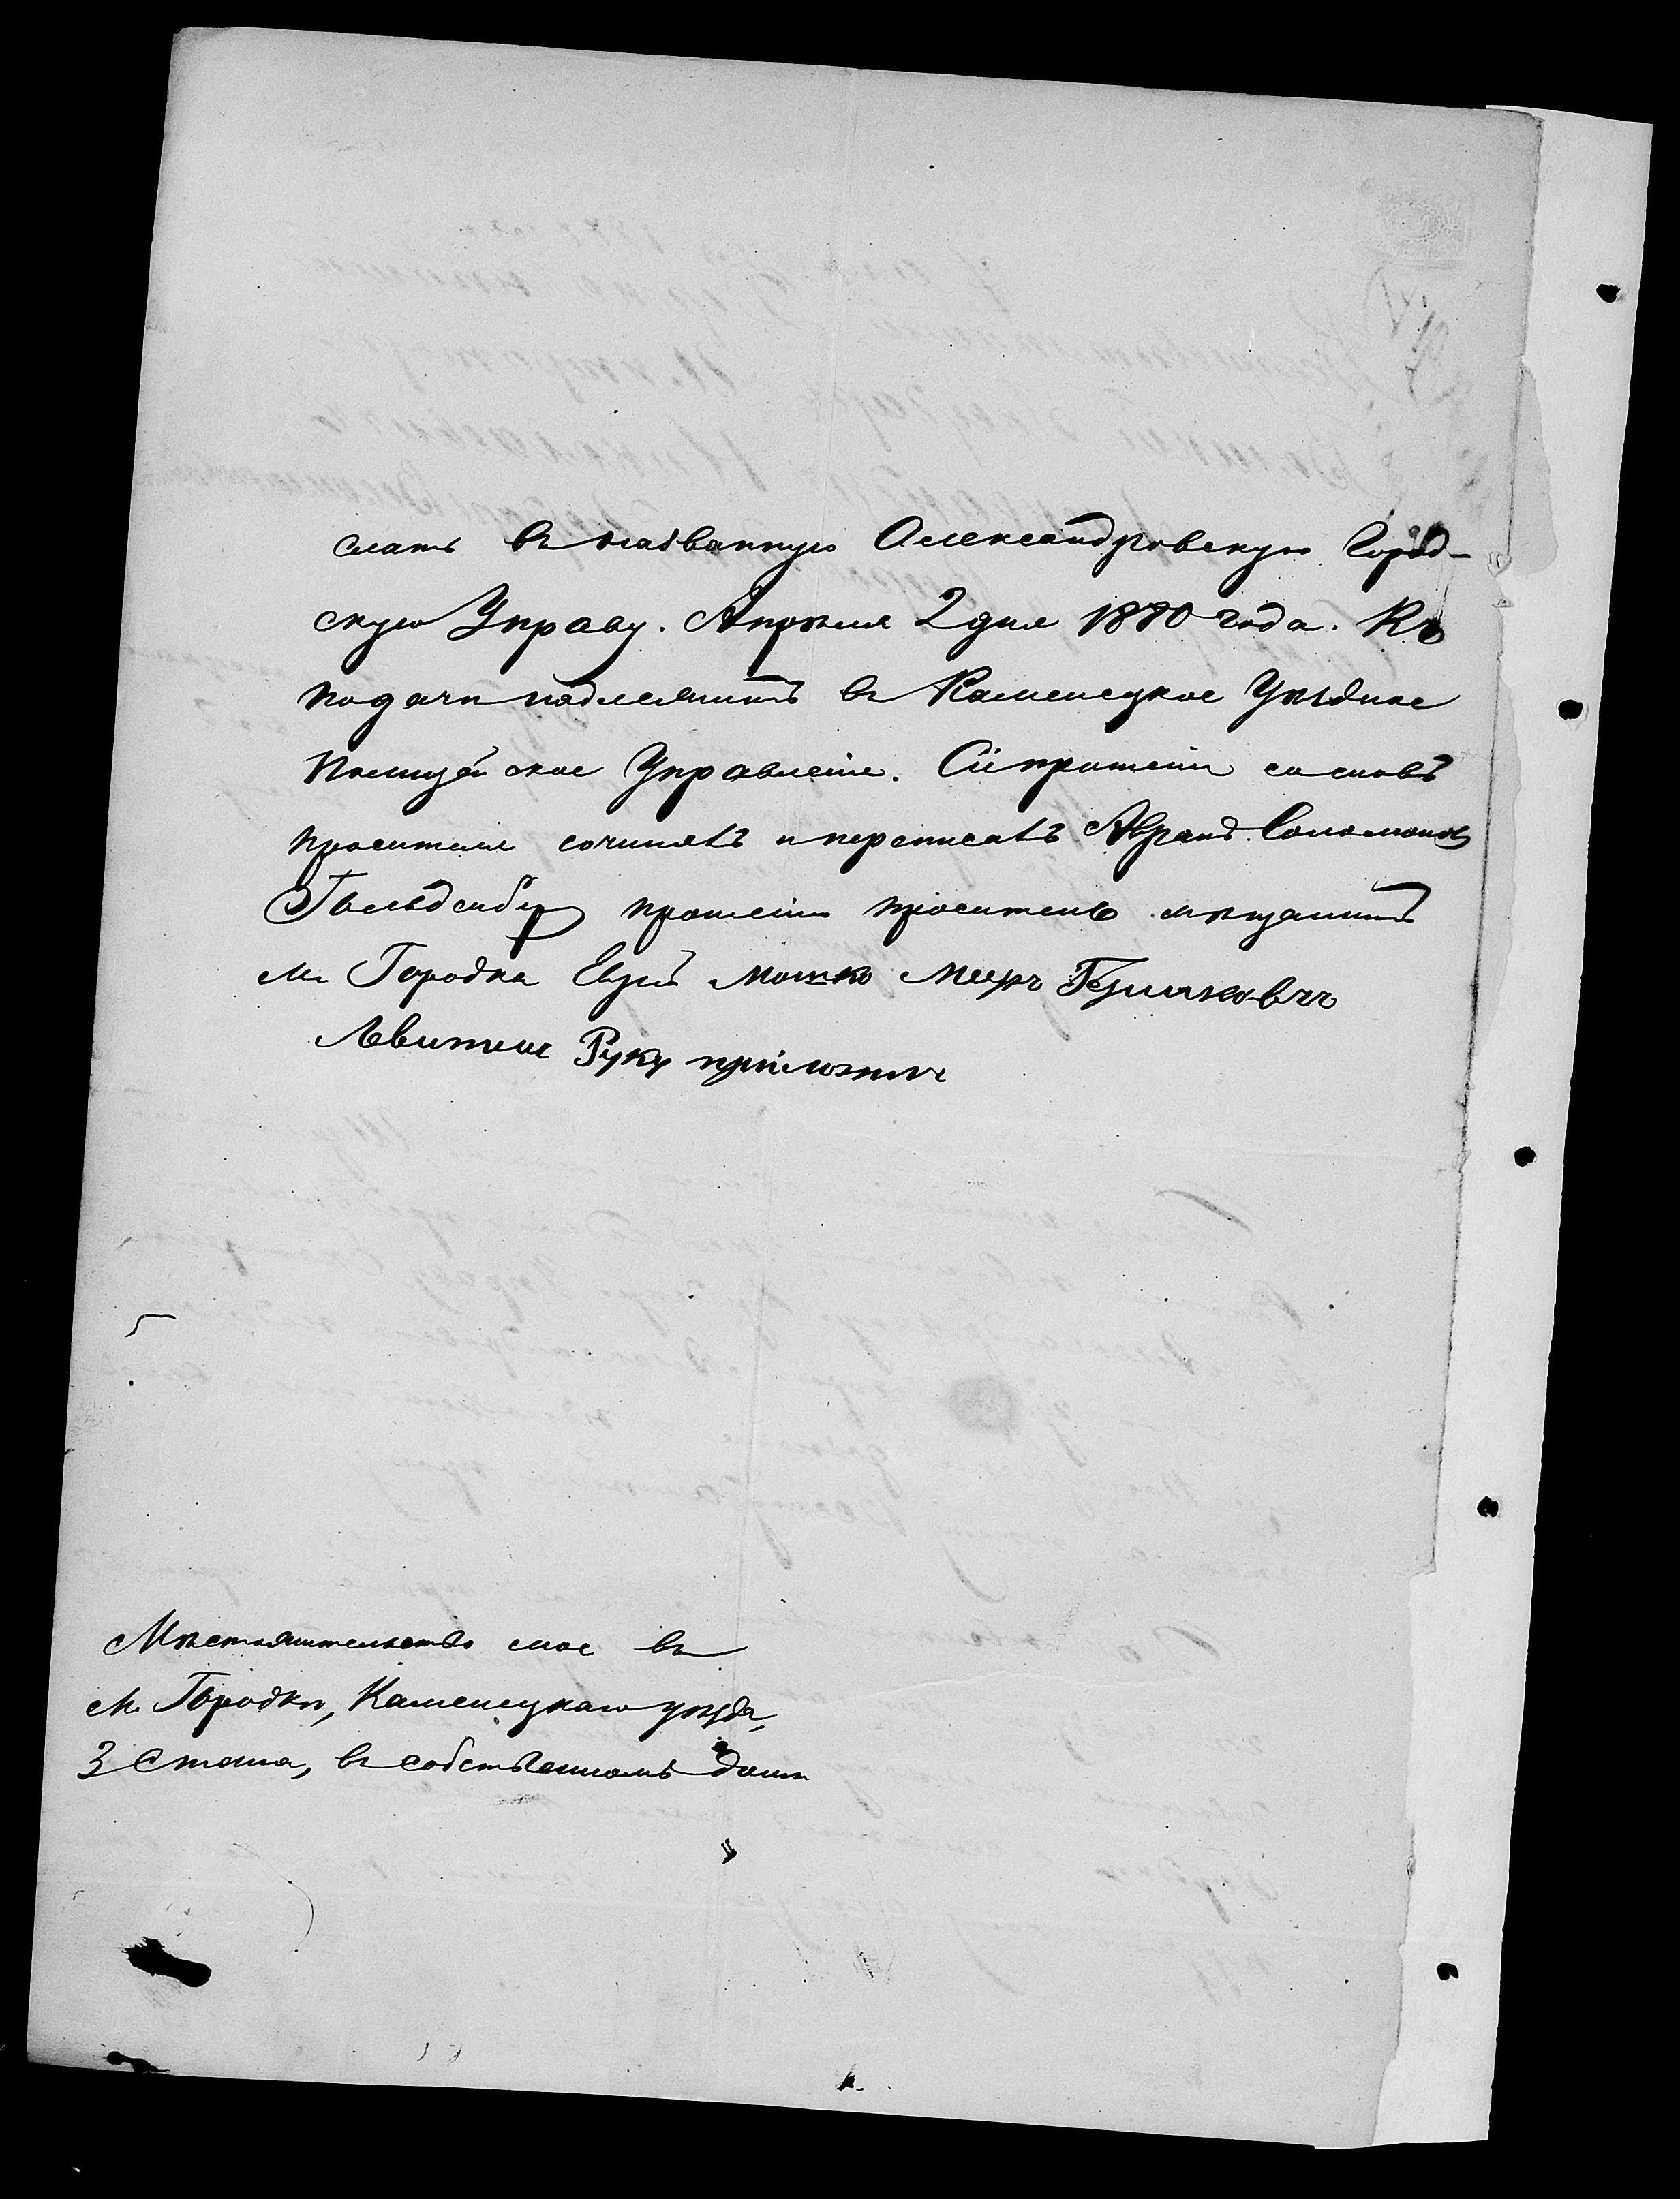 слать въ названную Александровскую Город-
скую Управу. Апрѣля 2 дня 1880 года. Къ
подачи надлежитъ въ Каменецкое Уѣздное
Полицейское Управленіе. Сіе прошеніе со словъ
просителя сочинялъ и переписалъ Абрамъ Соломоновъ
прошенію проситель мѣщанинъ
м. Городка Еврей Мошко Мееръ
Левитанъ Руку приложилъ
Мѣстожительство мое въ
м. Городкѣ, Каменецкаго уѣзда,
3 Стана, въ собственномъ домѣ